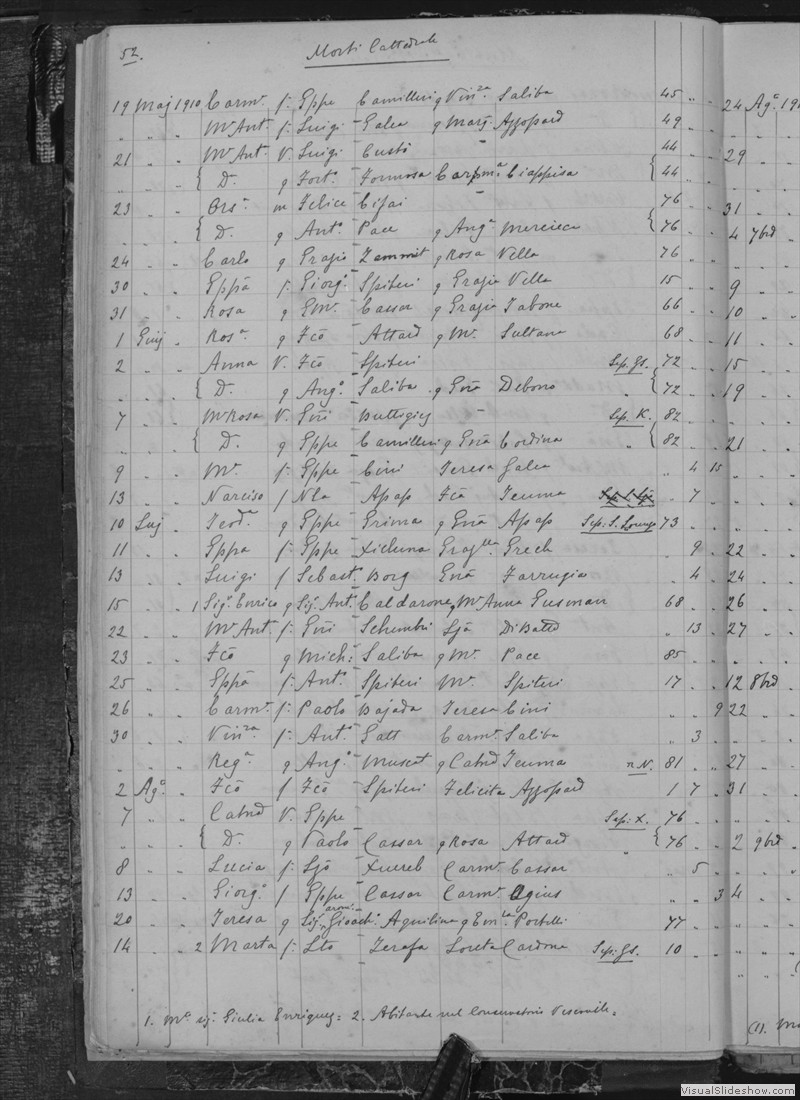 52. Morti Cattedrale
19 Maj 1910 Carmª f: Gppe Camilleri q Vinza Saliba 45 " " 24 Agº 191
" " " Mª Ant f: Luigi Galea q Marj Azzopard 49 " "
21 " " Mª Ant V. Luigi Custò " 44 " " 29 " "
" " " { D. q Fortº Formosa Carmª Ciappisa { 44 " "
23 " " Orsª m Felice Cifai 76 " " 31 " "
" " { D. q Antº Pace q Angª Mercieca { 76 " " 4 7brd "
24 " " Carlo q Grazio Zammit q Rosa Vella 76 " "
30 " " Gppā f: Giorgº Spiteri q Grazia Vella 15 " " 9 " "
31 " " Rosa q Emª Cassar q Grazia Tabone 66 " " 10 " "
1 Giuj " Rosª q Fcō Attard q Mª Sultana 68 " " 11 " "
2 " " Anna V. Fcō Spiteri Sep. Gs. 72 " " 15 " "
" " " { D. q Angº Saliba q Gnā Debono " { 72 " " 19 " "
7 " " Mª Rosa V. Gni Buttigieg Sep. K. 82 " "
" " { D. q Gppe Camilleri q Gnā Cordina " { 82 " " 21 " "
9 " " Mª f: Gppe Cini Teresa Galea " 4 15
13 " " Narciso f Nla Apap Fcā Teuma " 7 "
10 Luj " Teodª q Gppe Grima q Gnā Apap Sep: S. Lorenzo 73 " "
11 " " Gppa f: Gppe Xicluna Grazlla Grech " 9 " 22 " "
13 " " Luigi f Sebastº Borg Gnā Farrugia " 4 " 24 " "
15 " 1 Sigr Enrico q Sigr Antº Caldarone q Mª Anna Gusman 68 " " 26 " "
22 " " Mª Ant. f: Gni Schembri Ljā DiBatto " 13 " 27 " "
23 " " Fcō q Mich: Saliba q Mª Pace 85 " "
25 " " Gppā f: Antº Spiteri Mª Spiteri 17 " " 12 8brd "
26 " " Carmª f: Paolo Bajada Teresa Cini " " 9 22 " "
30 " " Vinza f: Antº Gatt Carmª Saliba " 3 "
" " Regª q Angº Muscat q Catnd Teuma n N. 81 " " 27 " "
2 Agº " Fcō f Fcō Spiteri Felicita Azzopard 1 7 " 31 " "
7 " " Catnd V. Gppe Sep: X. 76 " "
" " { D. q Paolo Cassar q Rosa Attard " { 76 " " 2 9brd "
8 " " Lucia f: Ljō Xuereb Carmª Cassar " 5 "
13 " " Giorgº f Gppe Cassar Carmª Agius " " 3 4 " "
20 " " Teresa q Sigr Gioachº Aquilina q Emla Portelli 77 " "
14 " 2 Marta f: Sto Zerafa Loreta Cardona Sep: Gs. 10 " "
1. Mº sigr Giulia Enriquez = 2. Abitante nel Conservatorio Vescovile =
(1). Ma
VisualSlideshow.com